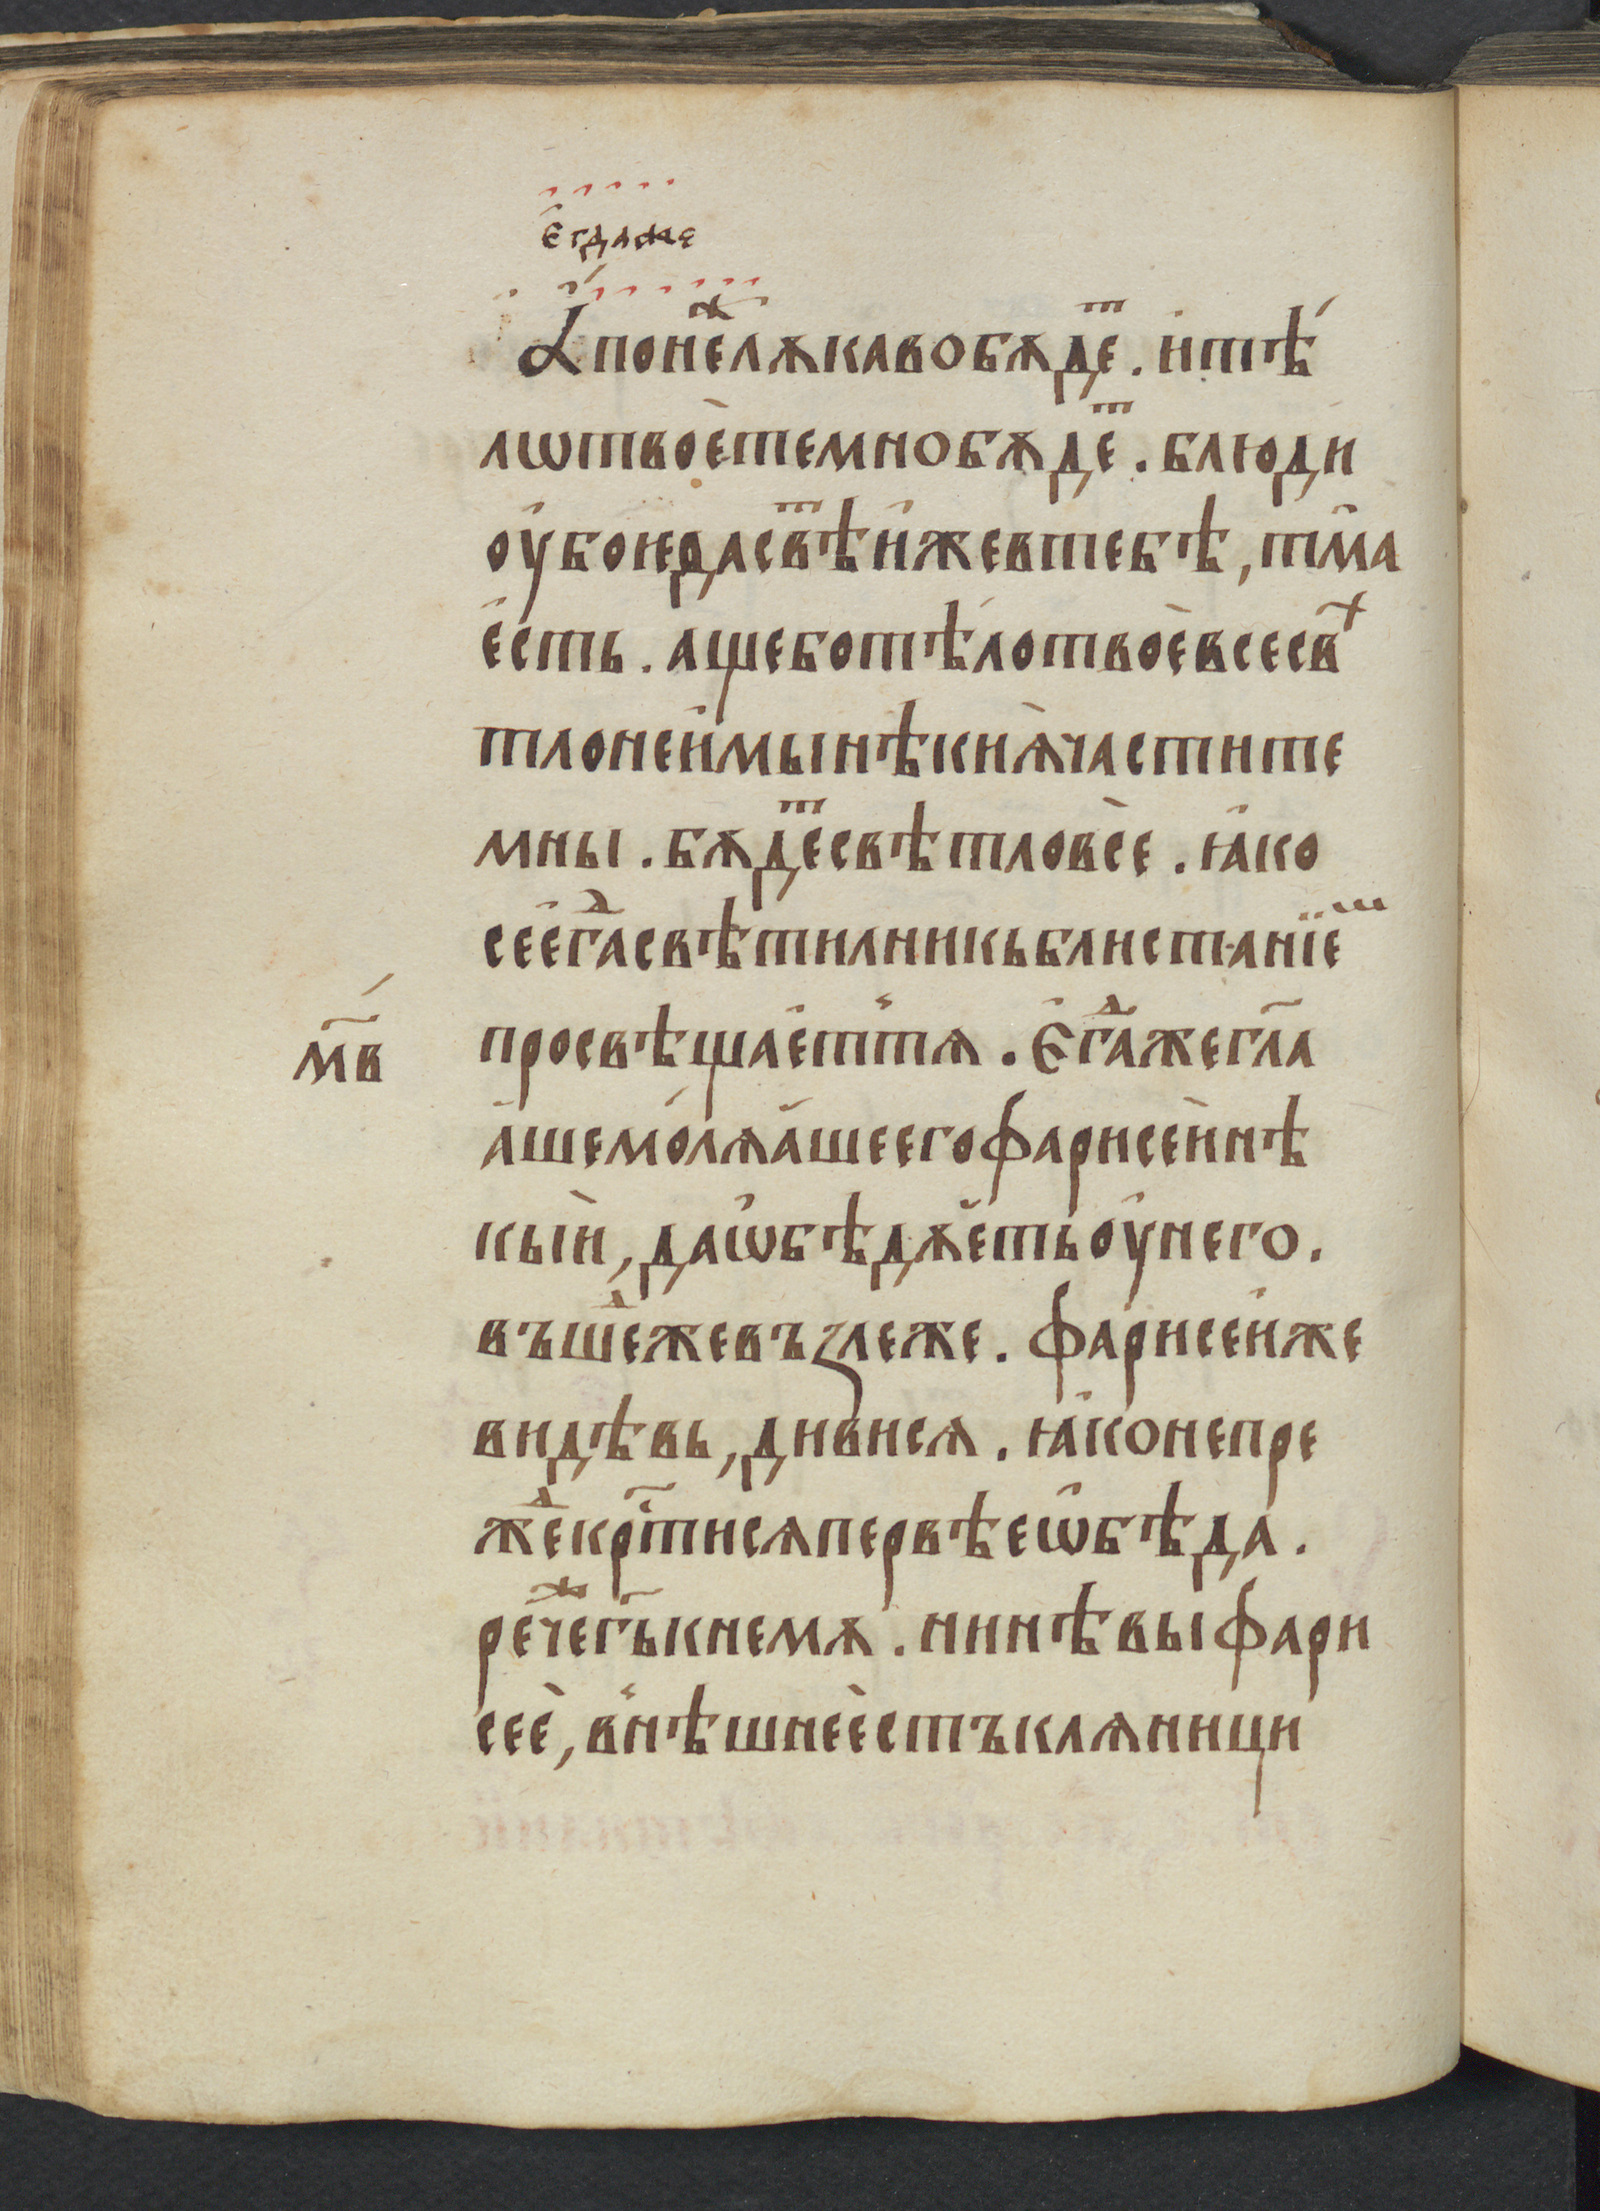 е҆гдаже
А҆понеⷤлѫкавобѫдеⷮ. и҆тѣ́
лѡтвоѐтемнобѫдеⷮ. блюди
оу҆боегдасвⷮѣи҆жевтебѣ, тма̀
є҆сть. ащеботѣлотвоѐвсесвⷯ
тлонеи҆мынѣкиѧ҆частите
мны. бѫдеⷮсвѣтловсе. ꙗ҆ко
сеегⷣасвѣтилникьблистанїеⷨ
просвѣщае҆ттѧ. Є҆гⷣажегл҃а
мв҃
а҆шемо́лѧа҆шеегофарисеѝнѣ
кыѝ, даѡ҆бѣдѫетьоу҆него.
въшеⷣжевъꙁлеже. фарисеи҆же
видѣвь, дивисѧ. ꙗ҆конепре
жеⷣкрⷭ҇тисѧпервѣеѡ҆бѣда.
речеⷤгь҃кнемѫ. нинѣвыфари
сеѐ, вънѣшнеестъклѧници